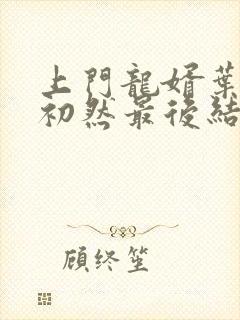 上門龍婿葉
初然最後結
顧終笙